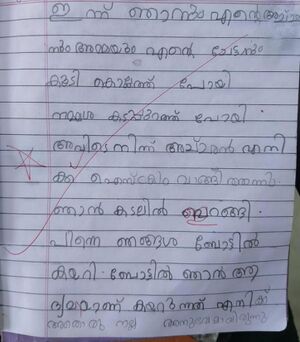 ഇന്ന് ഞാനും എന്റെ അച്ഛ
നും അമ്മയും എന്റെ ചേട്ടനും
കൂടി കൊല്ലത്ത് പോയി
നമ്മൾ കടപ്പുറത്ത് പോയി
അവിടെ നിന്ന് അച്ഛൻ എനി
ക്ക് ഐസ്ക്രീം വാങ്ങി തന്നു.
ഞാൻ കടലിൽ ഇറങ്ങി.
പിന്നെ ഞങ്ങൾ ബോട്ടിൽ
കയറി. ബോട്ടിൽ ഞാൻ ആ
ദ്യമാണ് കയറുന്നത് എനിക്ക്
അതൊരു നല്ല അനുഭവമായിരുന്നു